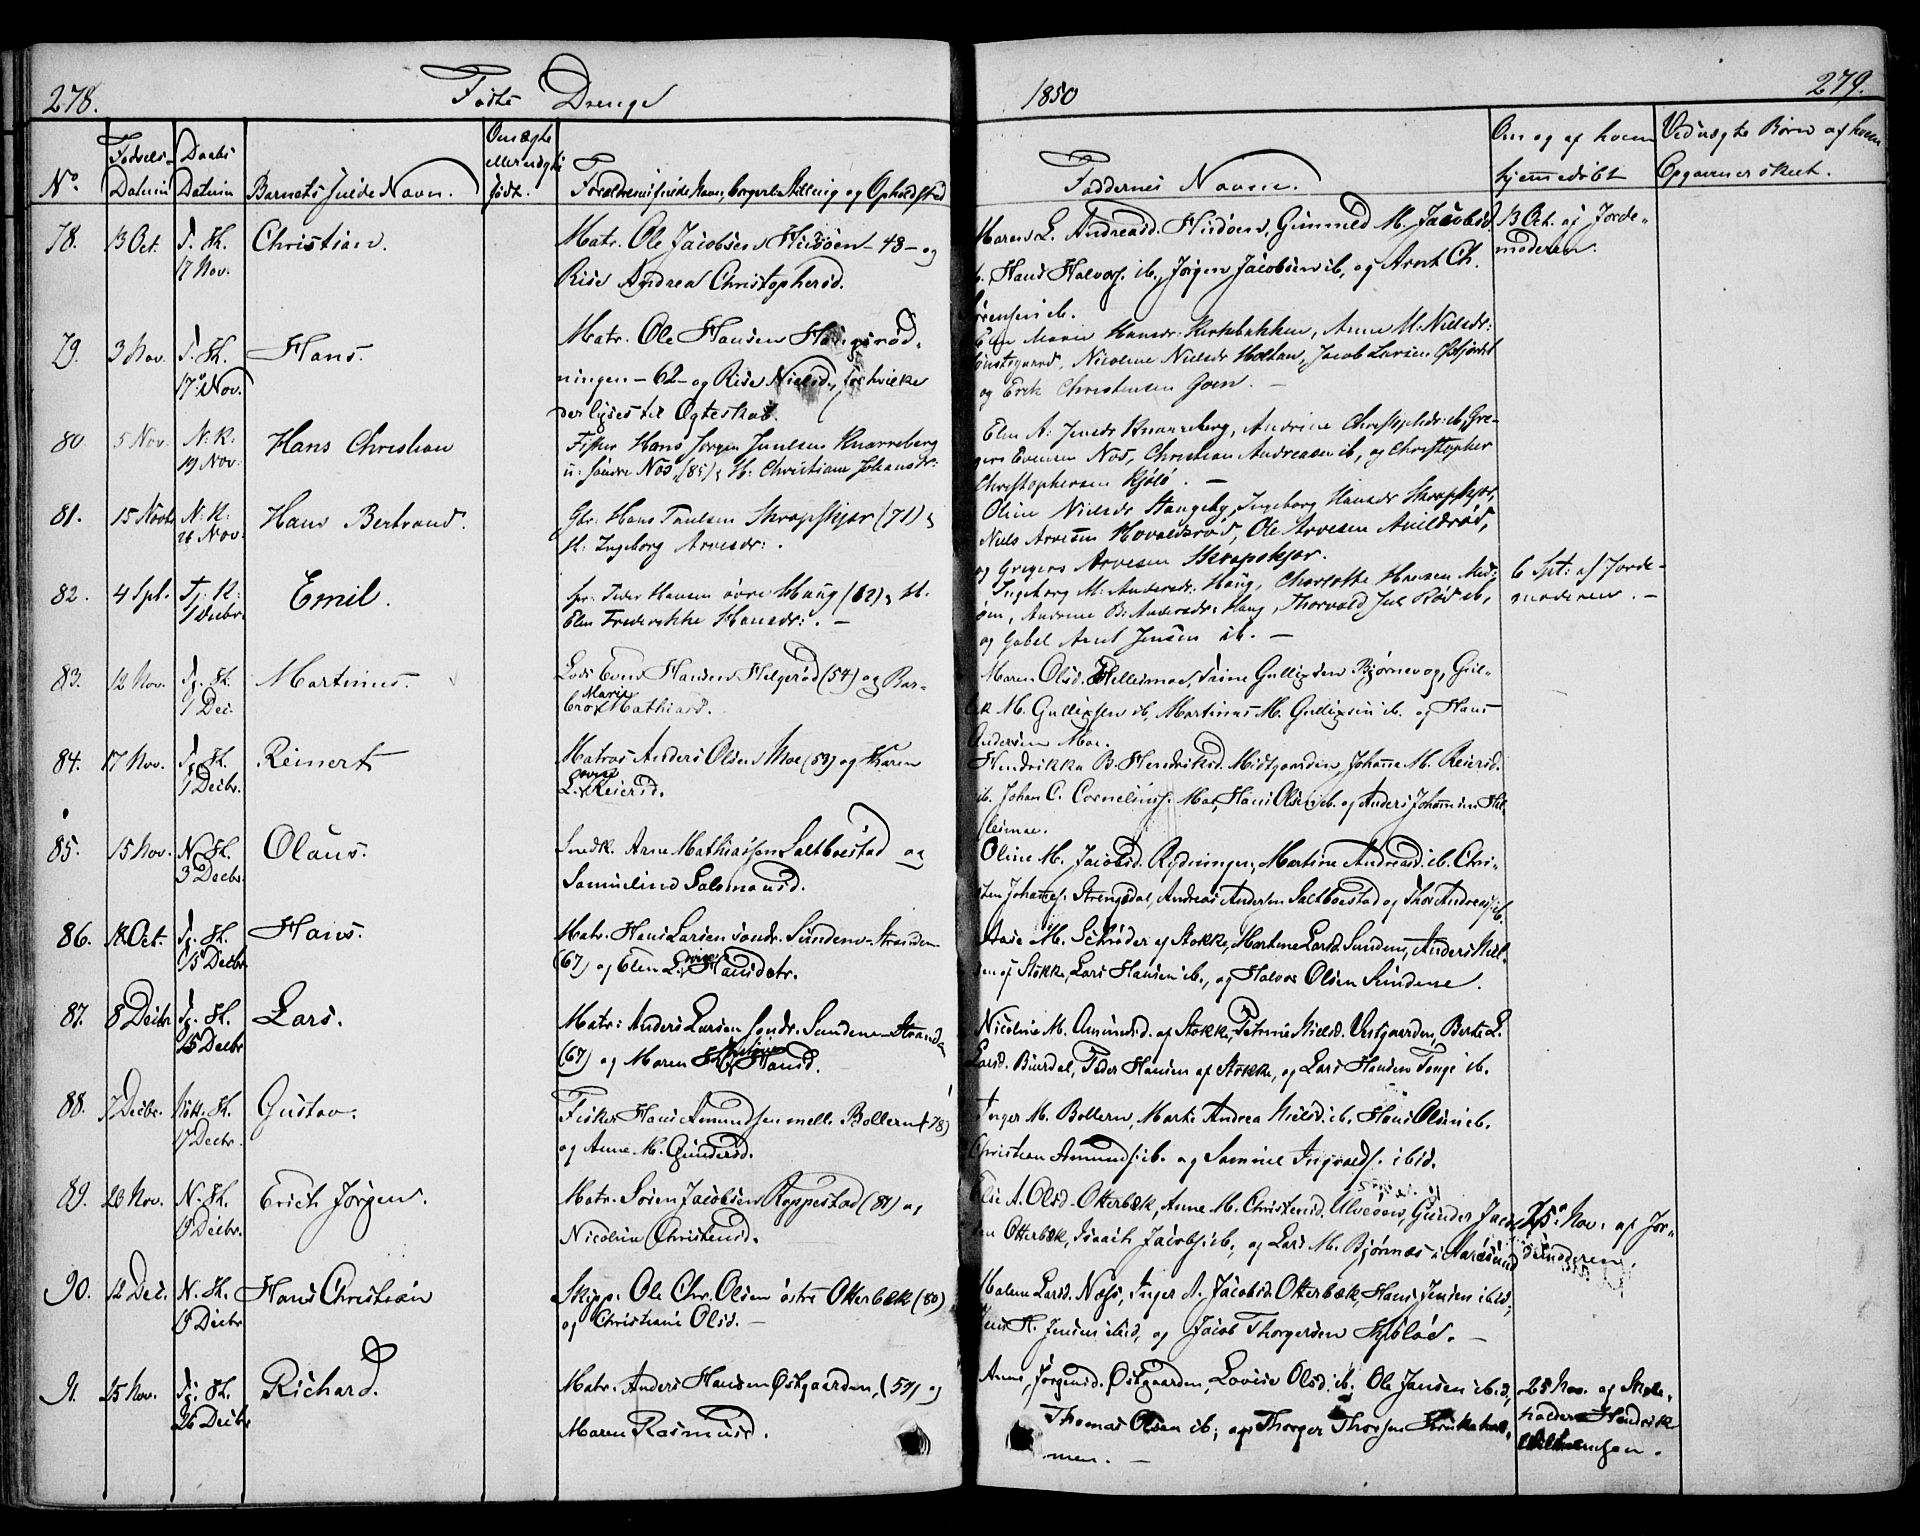 278.
Fødte Drenge
1850
279.
No.
Fødsels-
Datum
Daabs
Datum
Barnets fulde Navn.
Om ægte
eller uægte
født.
Forældrenes fulde Navn, borgerl. Stilling og Opholdsted
Faddernes Navne.
Om og af hvem
hjemmedøbt
Ved uægte Børn af hvem
Opgaven er skeet.
78.
13 Oct.
17 Nov.
Christian.
Matr. Ole Jacobsen - 48 - og
Rise Andrea Christophersd.
Maren L. Andreasd. Gunnild M. Jacobsd
Hans Halvors. ib., Jørgen Jacobsen ib, og Arnt Ch.
13 Oct. af Jorde-
moderen.
79.
3 Nov.
17 Nov.
Hans.
Matr. Ole Hansen
ningen - 62 - og Rise Nielsd., for hvilke
der lyses til Ægteskab.
Maria Hansdr: Kirkebakken, Anne M: Nielsdr:
Nicoline Nielsdr Holtan, Jacob Larsen
og Erik Christensen Goen. -
80.
5 Nov.
N: K:
19 Nov:
Hans Christian
Fisker Hans Jørgen Juulsen Knarreberg
u: søndre Nøs, (85) & H: Christiane Johansdr:
Elen A: Jensdr Knarreberg, Andrine Christophdr: ib, Gre-
gers Evensen Nøs, Christian Andreasen ib, og Christopher
Christophersen Kjølø. -
81.
15 Novb
N: K:
26 Nov:
Hans Bertrand.
Gbr: Hans Paulsen Skrapskjær (71) &
H: Ingeborg Arvesdr: .
Oline Nielsdr Stangeby, Ingeborg Hansdr Skrapskjær,
Niels Arvesen Ole Arvesen
og Gregers Arvesen Skrapskjær.
82.
4 Spt.
Tj: K:
1 Decbr.
Emil.
Peder Hansen øvre Haug (62) & H.
Elen Frederikke Hansdr: . -
Ingeborg M: Andersdr: Haug, Charlotte Hansen
Andrine B: Andersdr: Haug, Thorvald ib,
og Gabel Arnt Jensen ib. -
6 Spt: af Jorde-
moderen. -
83.
12 Nov.
1 Dec.
Martinus.
Lods Even Hansen Helgerød (54) og Bar-
Marie
bro Mathiasd.
Maren Olsd. Hellesmoe, Trine Gullixsen Bjørnevog, Gul-
M. Gullixsen ib, Martinus M. Gullixsen ib. og Hans
Andersen Moe.
84.
17 Nov.
1 Decbr.
Reinert
Matros Anders Olsen Moe (53) og Karen
Lovise
Reiersd.
Hendrikka B. Hendriksd. Midtgaarden, Johanne M. Reiersd.
ib. Johan C. Corneliuss. Moe, Hans Olsen ib. og Anders Johannsen Hel-
lesmoe.
85.
15 Nov.
3 Decbr.
Olaus.
Snedk. Arne Mathiassen Saltboestad og
Samueline Salomonsd.
Oline M. Jacobsd. Rydningen, Martine Andreasd. ib. Chri-
sten Johannes. Strengsdal, Andreas Andersen Saltboestad og Thor Andreass. ib.
86.
18 Oct.
15 Decbr
Hans.
Matr. Hans Larsen søndr. Sundene-Stranden
(67) og Elen Hansdtr.
Aase M. Schrøder af Stokke, Martine Larsd. Sundene, Anders Niel-
sen af Stokke, Lars Hansen ib., og Halvor Olsen Sundene.
87.
8 Decbr
15 Decbr
Lars.
Matr: Anders Larsen søndr. Sundene Strande
(67) og Maren Hansd.
Nicoline M. Amundsd. af Stokke, Petrine Nielsd. Vestgaarden, Berte L.
Larsd. Buerdal, Peder Hansen af Stokke, og Lars Hansen Tonge ib.
88.
7 Decbr.
17 Decbr.
Gustav.
Fisker Hans Amundsen mell. Bollern (78)
og Anne M. Gundersd.
Inger M. Bollern, Marte Andrea Nielsd. ib. Hans Olsen ib.
Christian Amunds. ib. og Samuel Ingvalds. ibid.
89.
20 Nov.
19 Decbr.
Erich Jørgen.
Matr. Søren Jacobsen Roppestad (81) og
Nicoline Christensd.
Elie A. Olsd. Otterbæk, Anne M. Christensd. Ulveøen, Gunder Jacob-
sen Otterbæk, Isaach Jacobs. ib, og Lars M. Bjørnæs i Aarøsund
25 Nov. af Jor-
demoderen.
90.
12 Dec.
19 Decbr
Hans Christian
Skipp. Ole Chr. Olsen østre Otterbæk (80)
og Christiane Olsd. -
Malene Larsd. Næss, Inger A. Jacobsd. Otterbæk, Hans Jensen ibid,
H. Jensen ibid, og Jacob Thorgersen -
91.
15 Nov.
26 Decbr
Richard.
Matr. Anders Hansen Østgaarden, (57) og
Maren Rasmusd.
Anne Jørgensd. Østgaarden, Lovise Olsd. ib, Ole Jansen ibid,
Thomas Olsen ib, og Thorger Thorsen
men. -
25 Nov. af Skole-
holder Hendrik
Wilhelmsen.